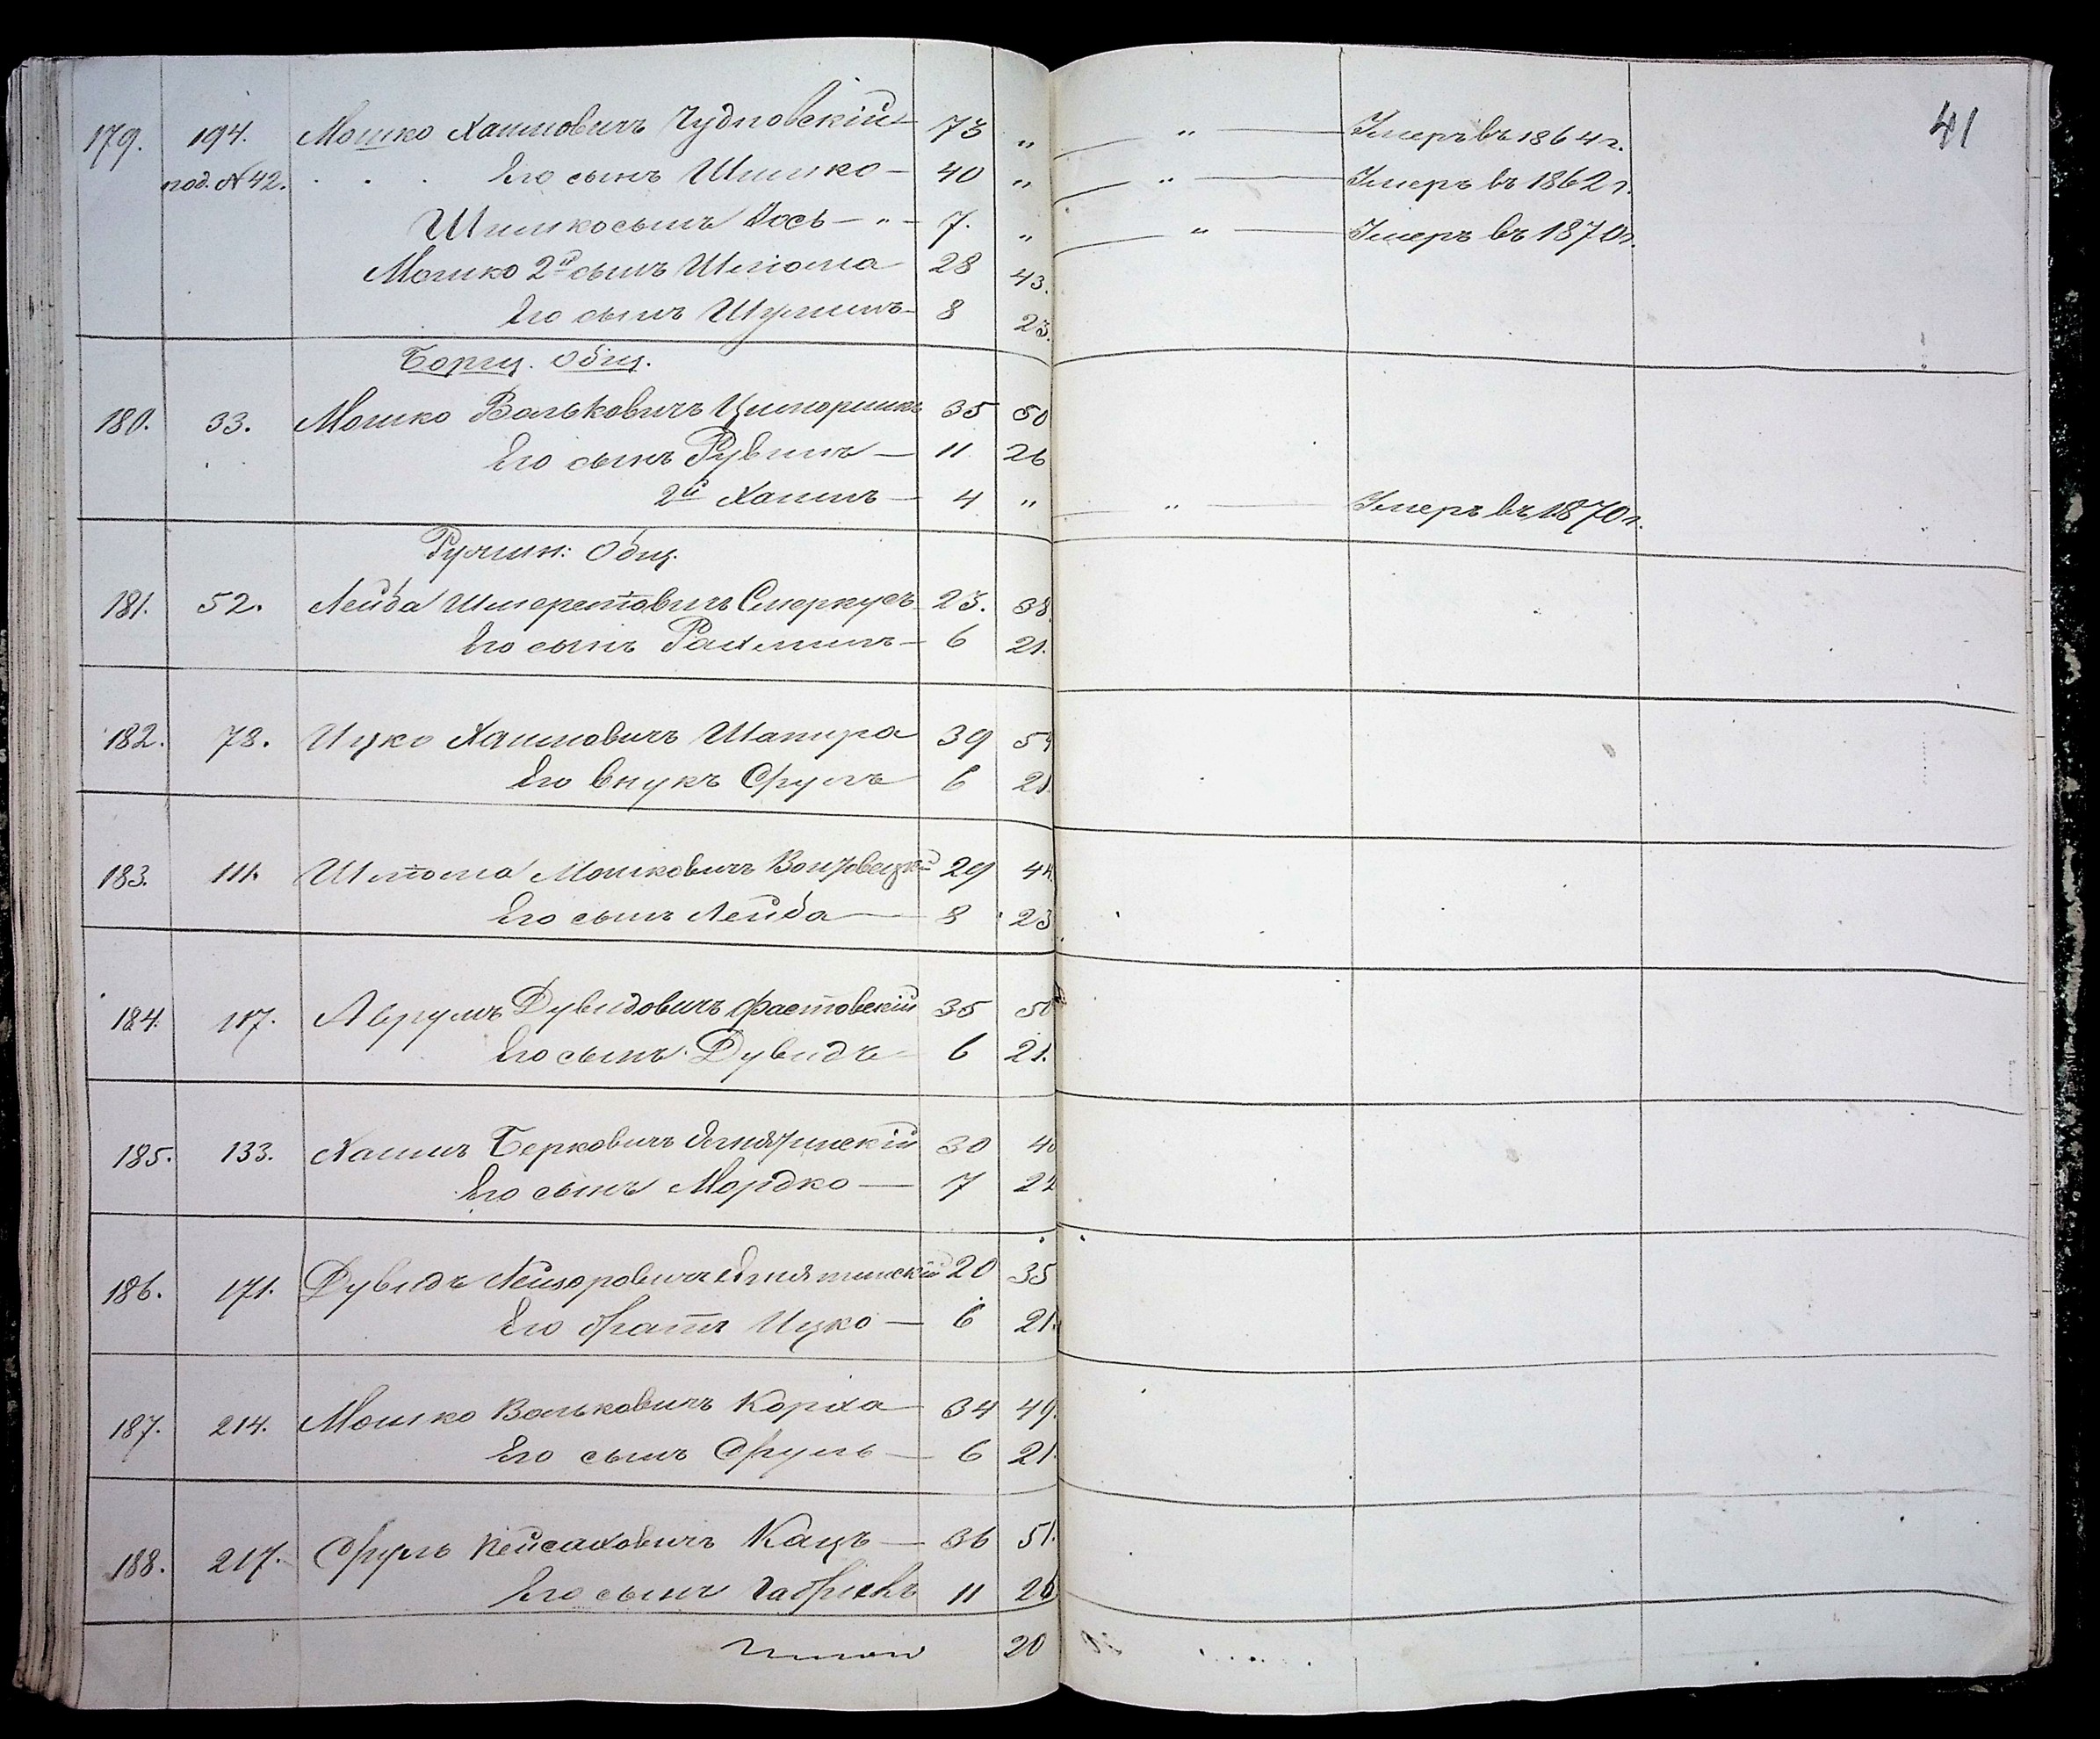 41
179. 194. Мошко Хаимовичъ Чудновскій 73 „ — „ — Умеръ въ 1864 г.
под. № 42. . . . Его сынъ Шимко — 40 „ — „ — Умеръ въ 1862 г.
Шимко сынъ Іось — „ — 7. „ — „ — Умеръ въ 1870 г.
Мошко 2й сынъ Шлиома 28 43.
Его сынъ Шулимъ — 8 23.
Борщ. Общ.
180. 33. Мошко Вольковичъ 35 50
Его сынъ Рувинъ — 11 26
2й Хаимъ — 4 „ — „ — Умеръ въ 1870 г.
Ружин: Общ.
181. 52. Лейба Шмереловичъ 23. 38.
Его сынъ Рахмиль — 6 21.
182. 78. Ицко Хаимовичъ Шапира 39 54
Его внукъ Сруль 6 21.
183. 111. Шлиома Мошковичъ 29 44.
Его сынъ Лейба — 8 23
184. 117. Аврумъ Дувидовичъ Фастовскій 35 50
Его сынъ Дувидъ 6 21.
185. 133. Хаимъ Берковичъ 30 40
Его сынъ Мордко — 7 22
186. 171. Дувидъ Лейзоровичъ 20 35
Его братъ Ицко — 6 21.
187. 214. Мошко Вольковичъ Корха 34 49.
Его сынъ Сруль — 6 21.
188. 217. Сруль Пейсаховичъ Кацъ — 36 51.
Его сынъ Габріель 11 26
Итого 20